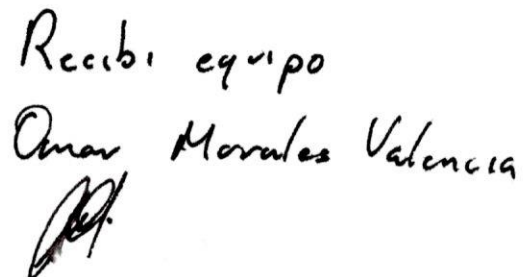 Recibi equipo
Omar Morales Valencia